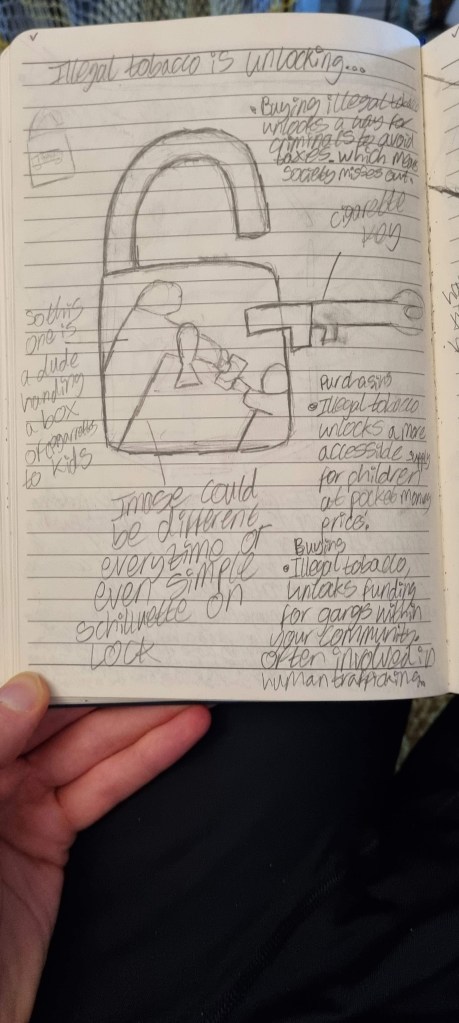 Illegal tobacco is unlocking...
• Buying illegal tobacco
unlocks a way for
criminals to avoid
taxes. which means
society misses out.
cigarette
key
so this
one is
a dude
handing
a box
of cigarretts
to kids
Purchasing
• Illegal tobacco
unlocks a more
accessible supply
for children
at pocket money
price.
Image could
be different
everytime or
even simple
schilluette on
Lock
Buying
• Illegal tobacco,
unlocks funding
for gangs within
your community.
often involved in
human trafficking.